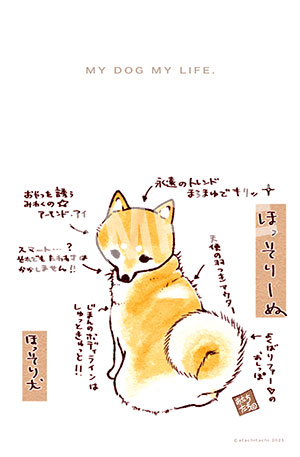 MY DOG MY LIFE.
永遠のトレンド
まろまゆで キリッ
おやつを誘う
みわくの☆
アーモンド・アイ
ほっそりーぬ
スマート…?
それでもたわわは
かかしません!!
天使の羽つきアウター
じまんのボディラインは
しゅっときゅっと!!
よくばりファー♡の
おしっぽ
ほっそり犬
©atachitachi 2025